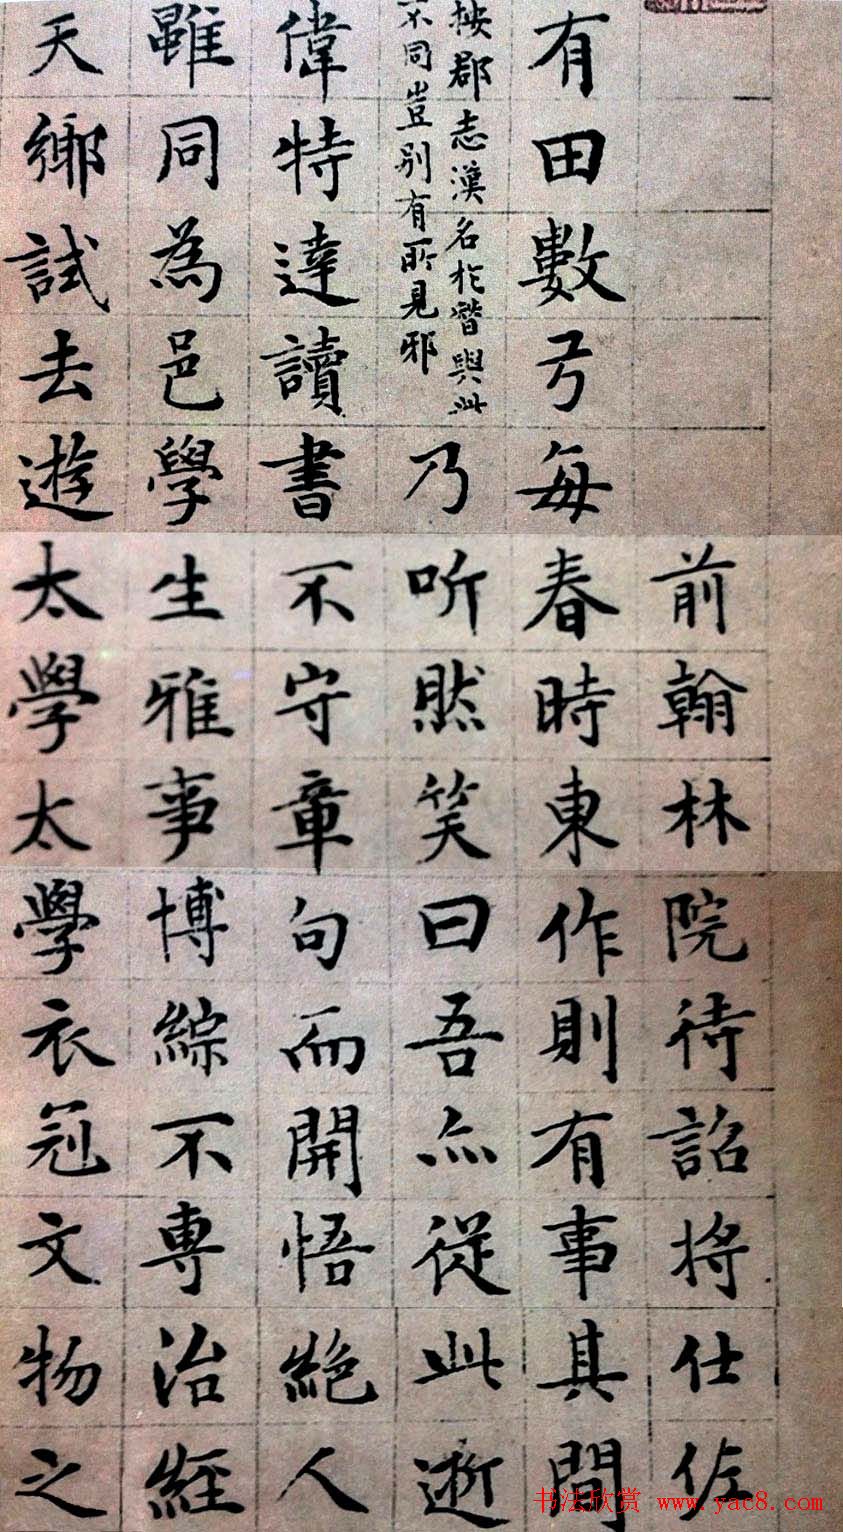 前翰林院待詔將仕佐
有田數弓每春時東作則有事其間
按郡志漢名於朁與此
不同豈別有所見邪
乃听然笑曰吾亦從此逝
偉特達讀書不守章句而開悟絕人
雖同為邑學生雅事博綜不專治經
天鄉試去遊太學太學衣冠文物之
书法欣赏 www.yac8.com